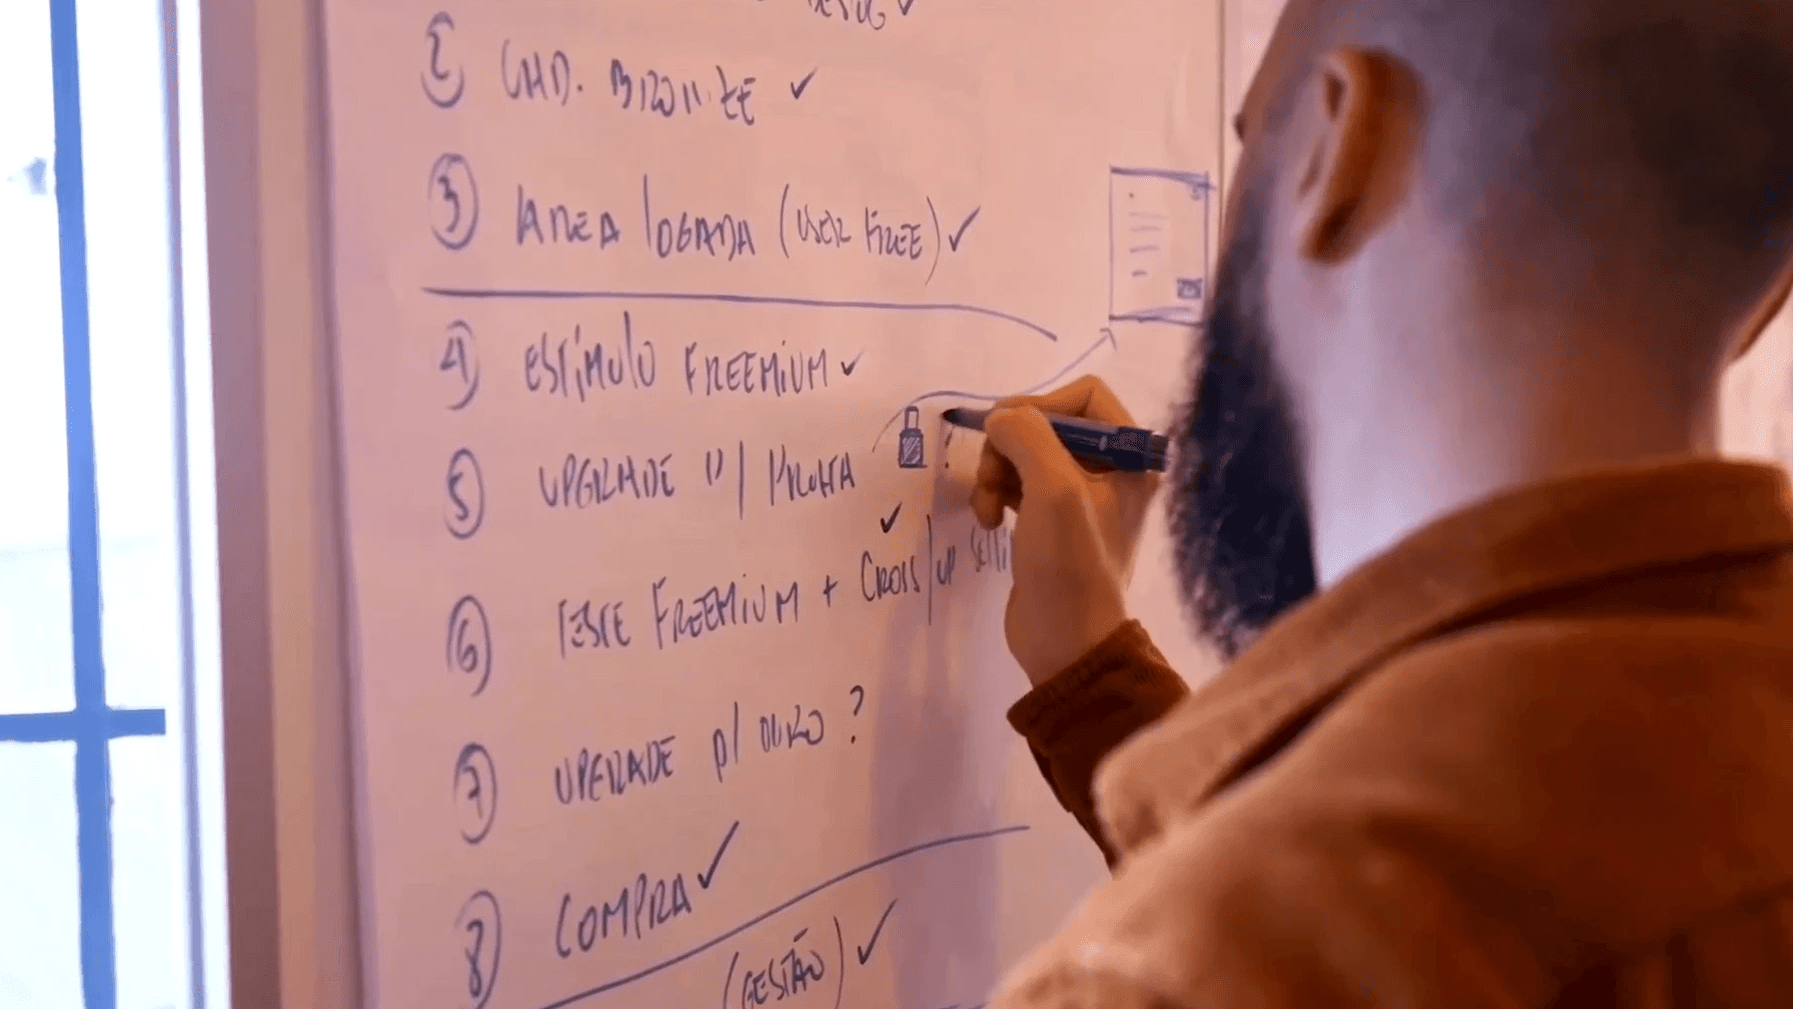 ② CAD. BRONZE ✓
③ ÁREA LOGADA (USER FREE) ✓
④ ESTÍMULO FREEMIUM ✓
⑤ UPGRADE P/ PRATA
⑥ TESTE FREEMIUM + CROSS/UP SELLI
✓
⑦ UPGRADE P/ OURO ?
⑧ COMPRA ✓
(GESTÃO) ✓